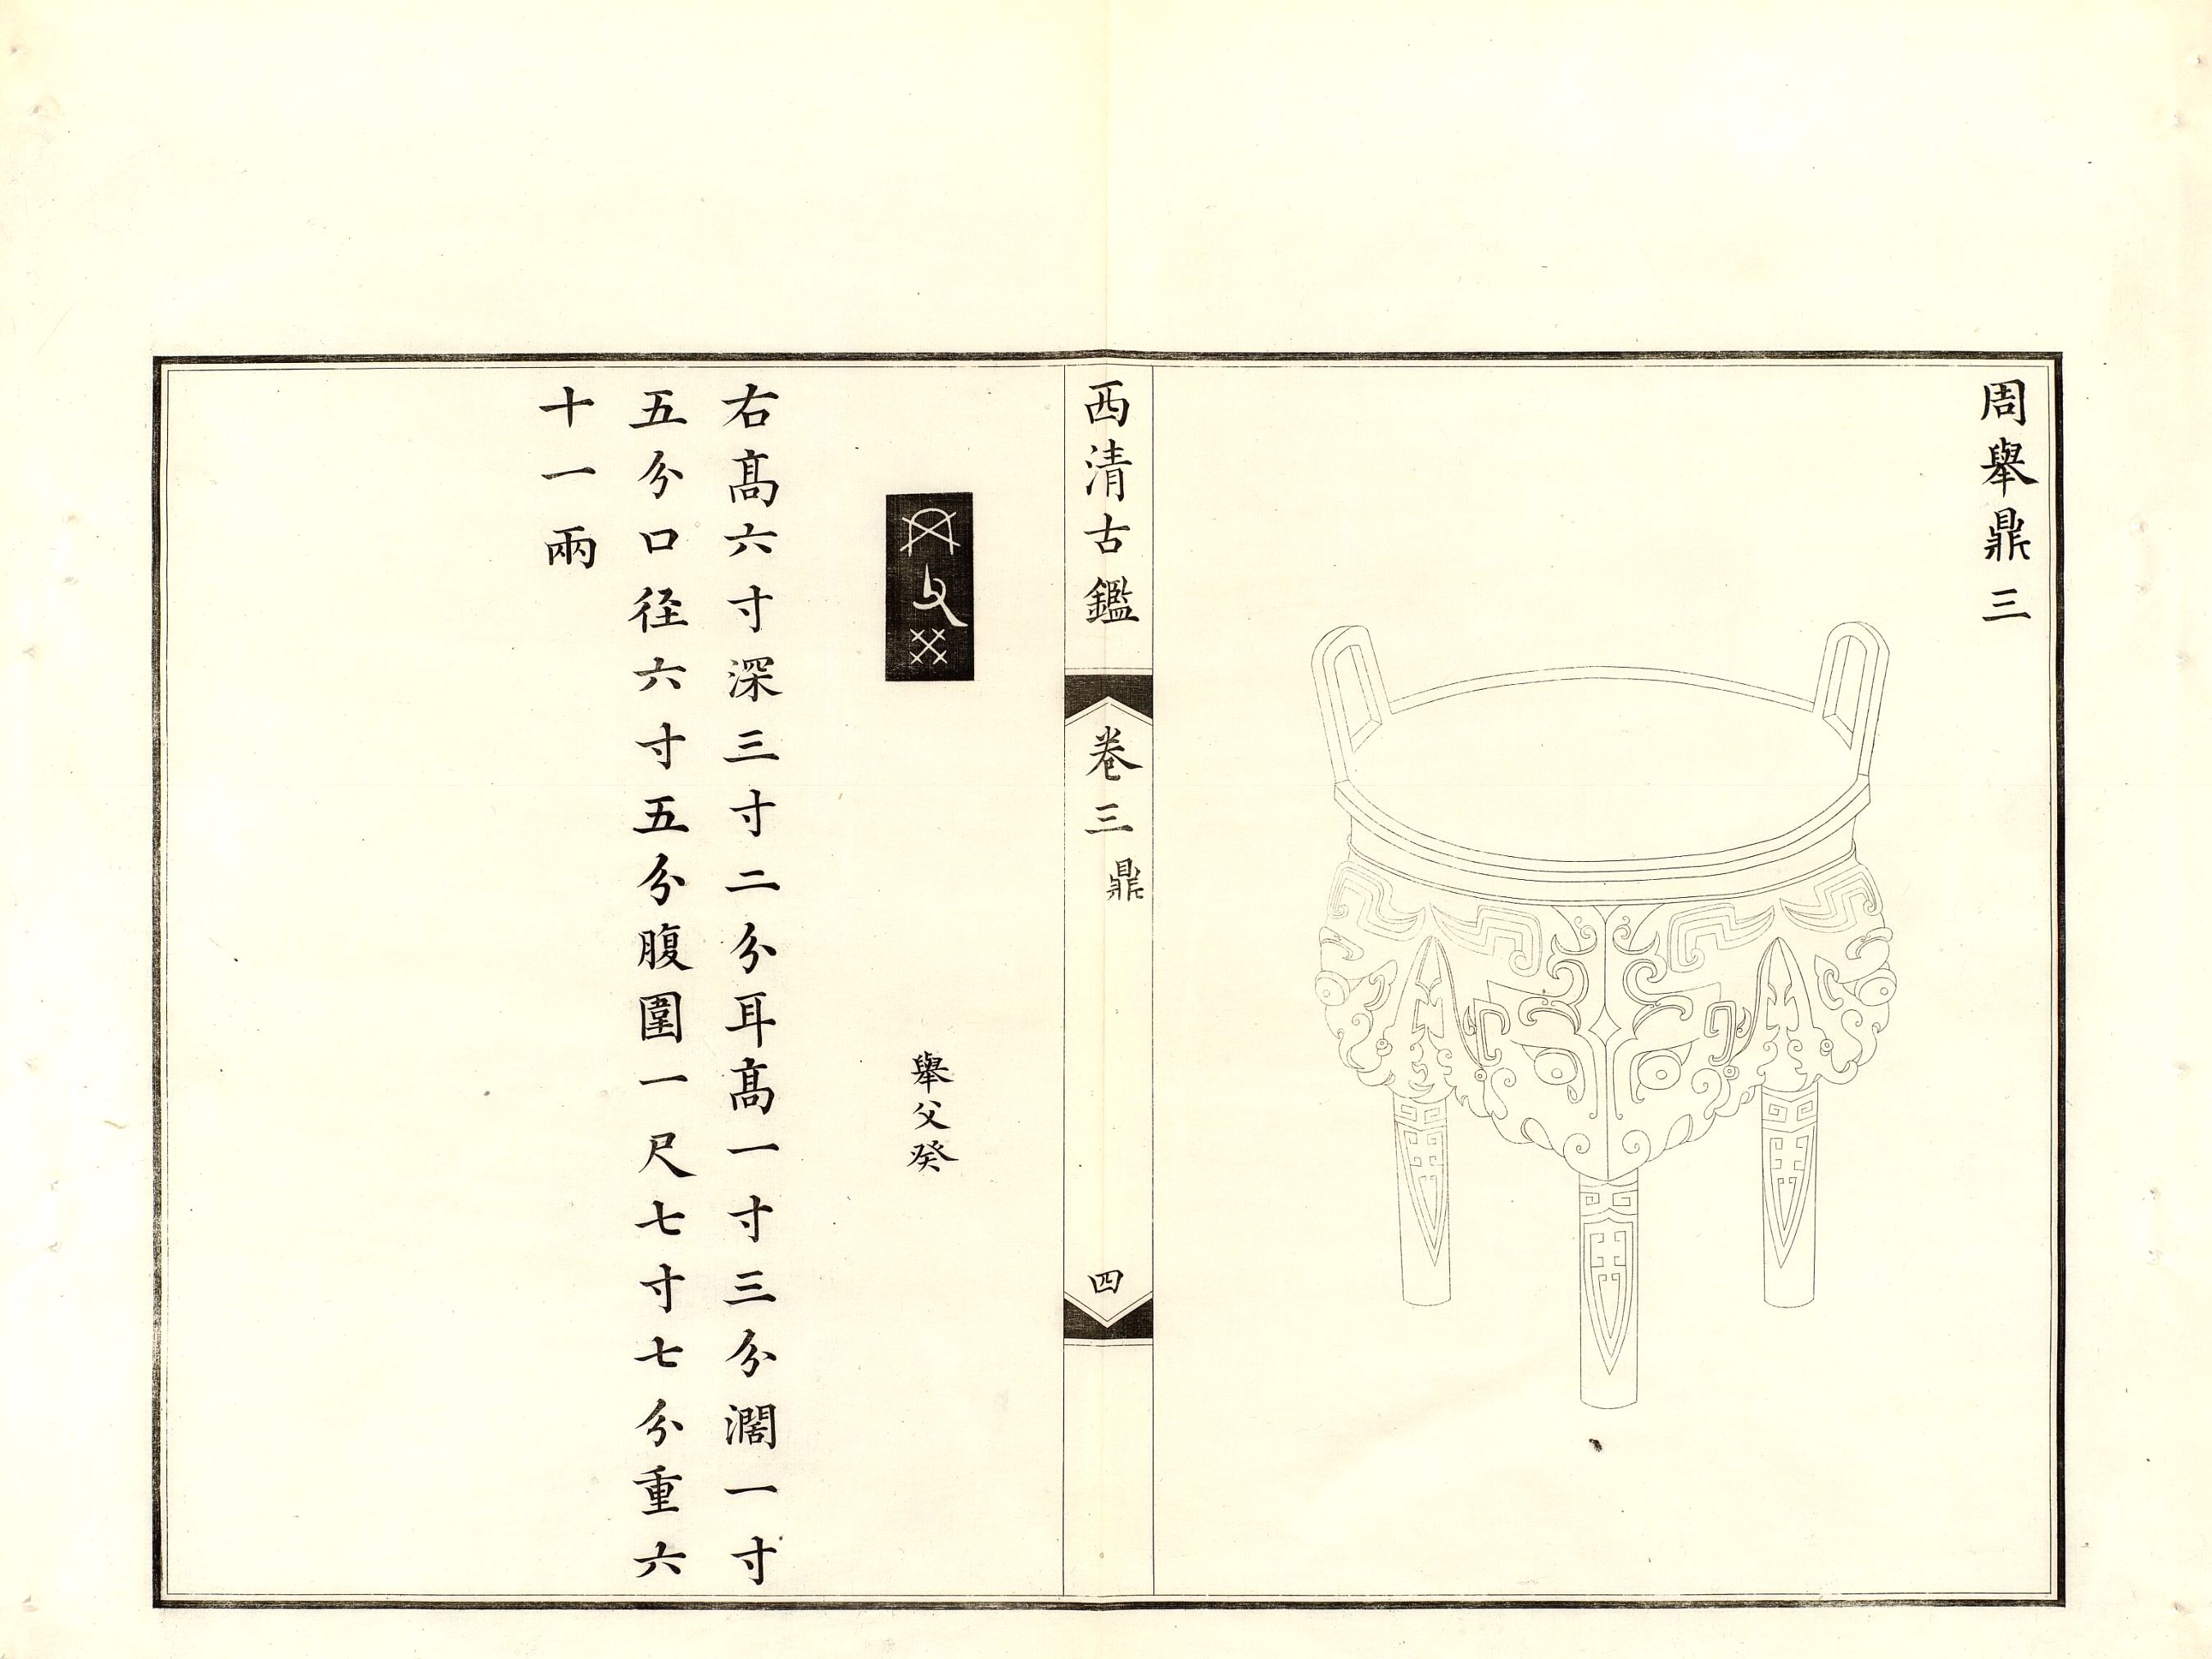 周舉鼎三
西清古鑑
卷三
鼎
四
舉父癸
右高六寸深三寸二分耳高一寸三分濶一寸
五分口径六寸五分腹圍一尺七寸七分重六
十一兩